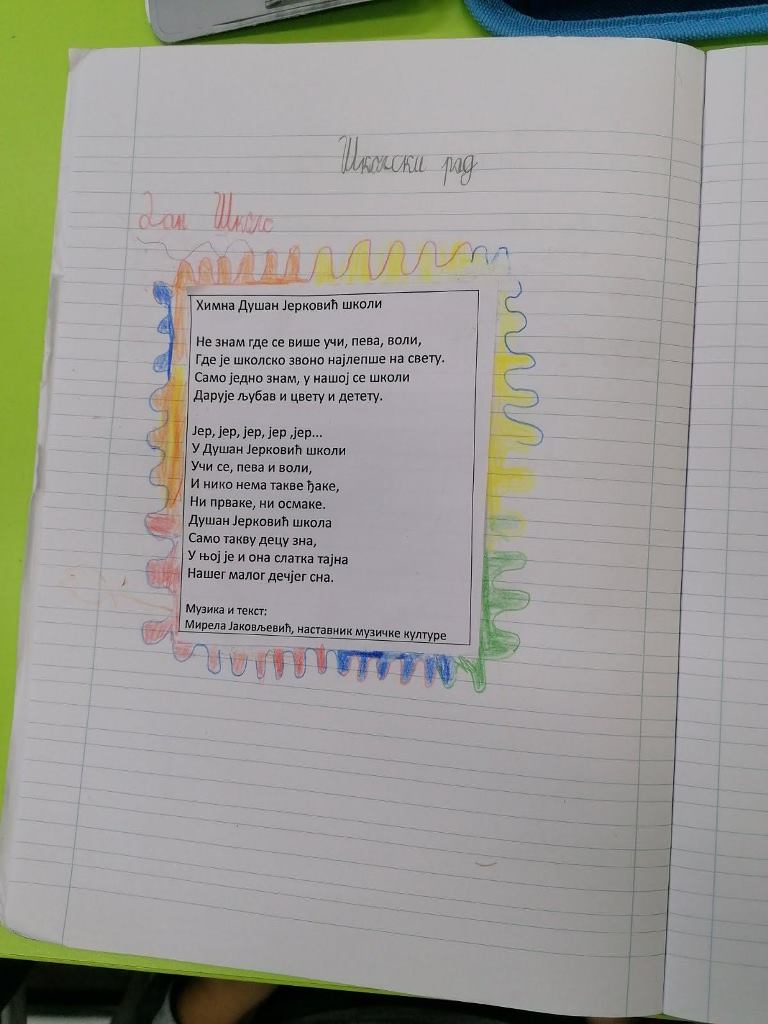 Школски рад
Дан Школе
Химна Душан Јерковић школи
Не знам где се више учи, пева, воли,
Где је школско звоно најлепше на свету.
Само једно знам, у нашој се школи
Дарује љубав и цвету и детету.
Јер, јер, јер, јер ,јер...
У Душан Јерковић школи
Учи се, пева и воли,
И нико нема такве ђаке,
Ни прваке, ни осмаке.
Душан Јерковић школа
Само такву децу зна,
У њој је и она слатка тајна
Нашег малог дечјег сна.
Музика и текст:
Мирела Јаковљевић, наставник музичке културе